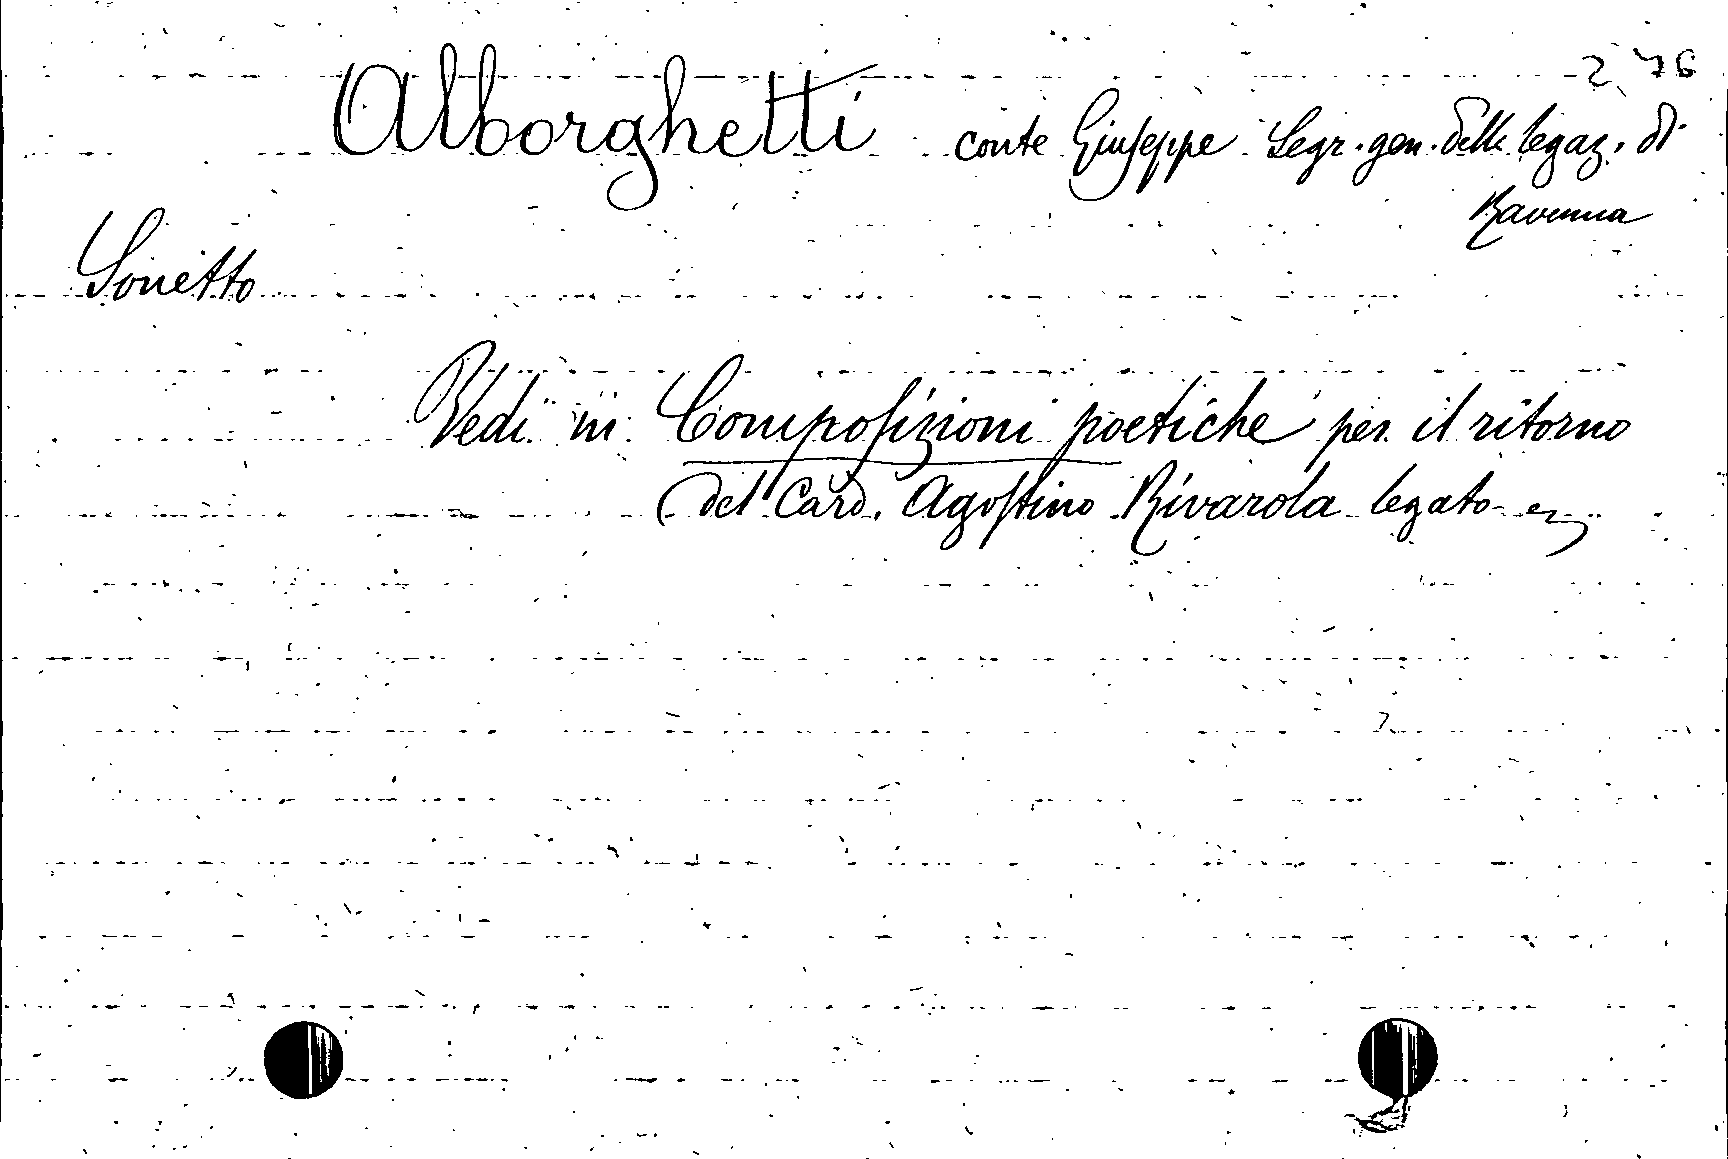 2 76
Alborghetti conte Giuseppe Segr. gen. della legaz. di
Ravenna
Sonetto
Vedi in Composizioni poetiche per il ritorno
del Card. Agostino Rivarola legato